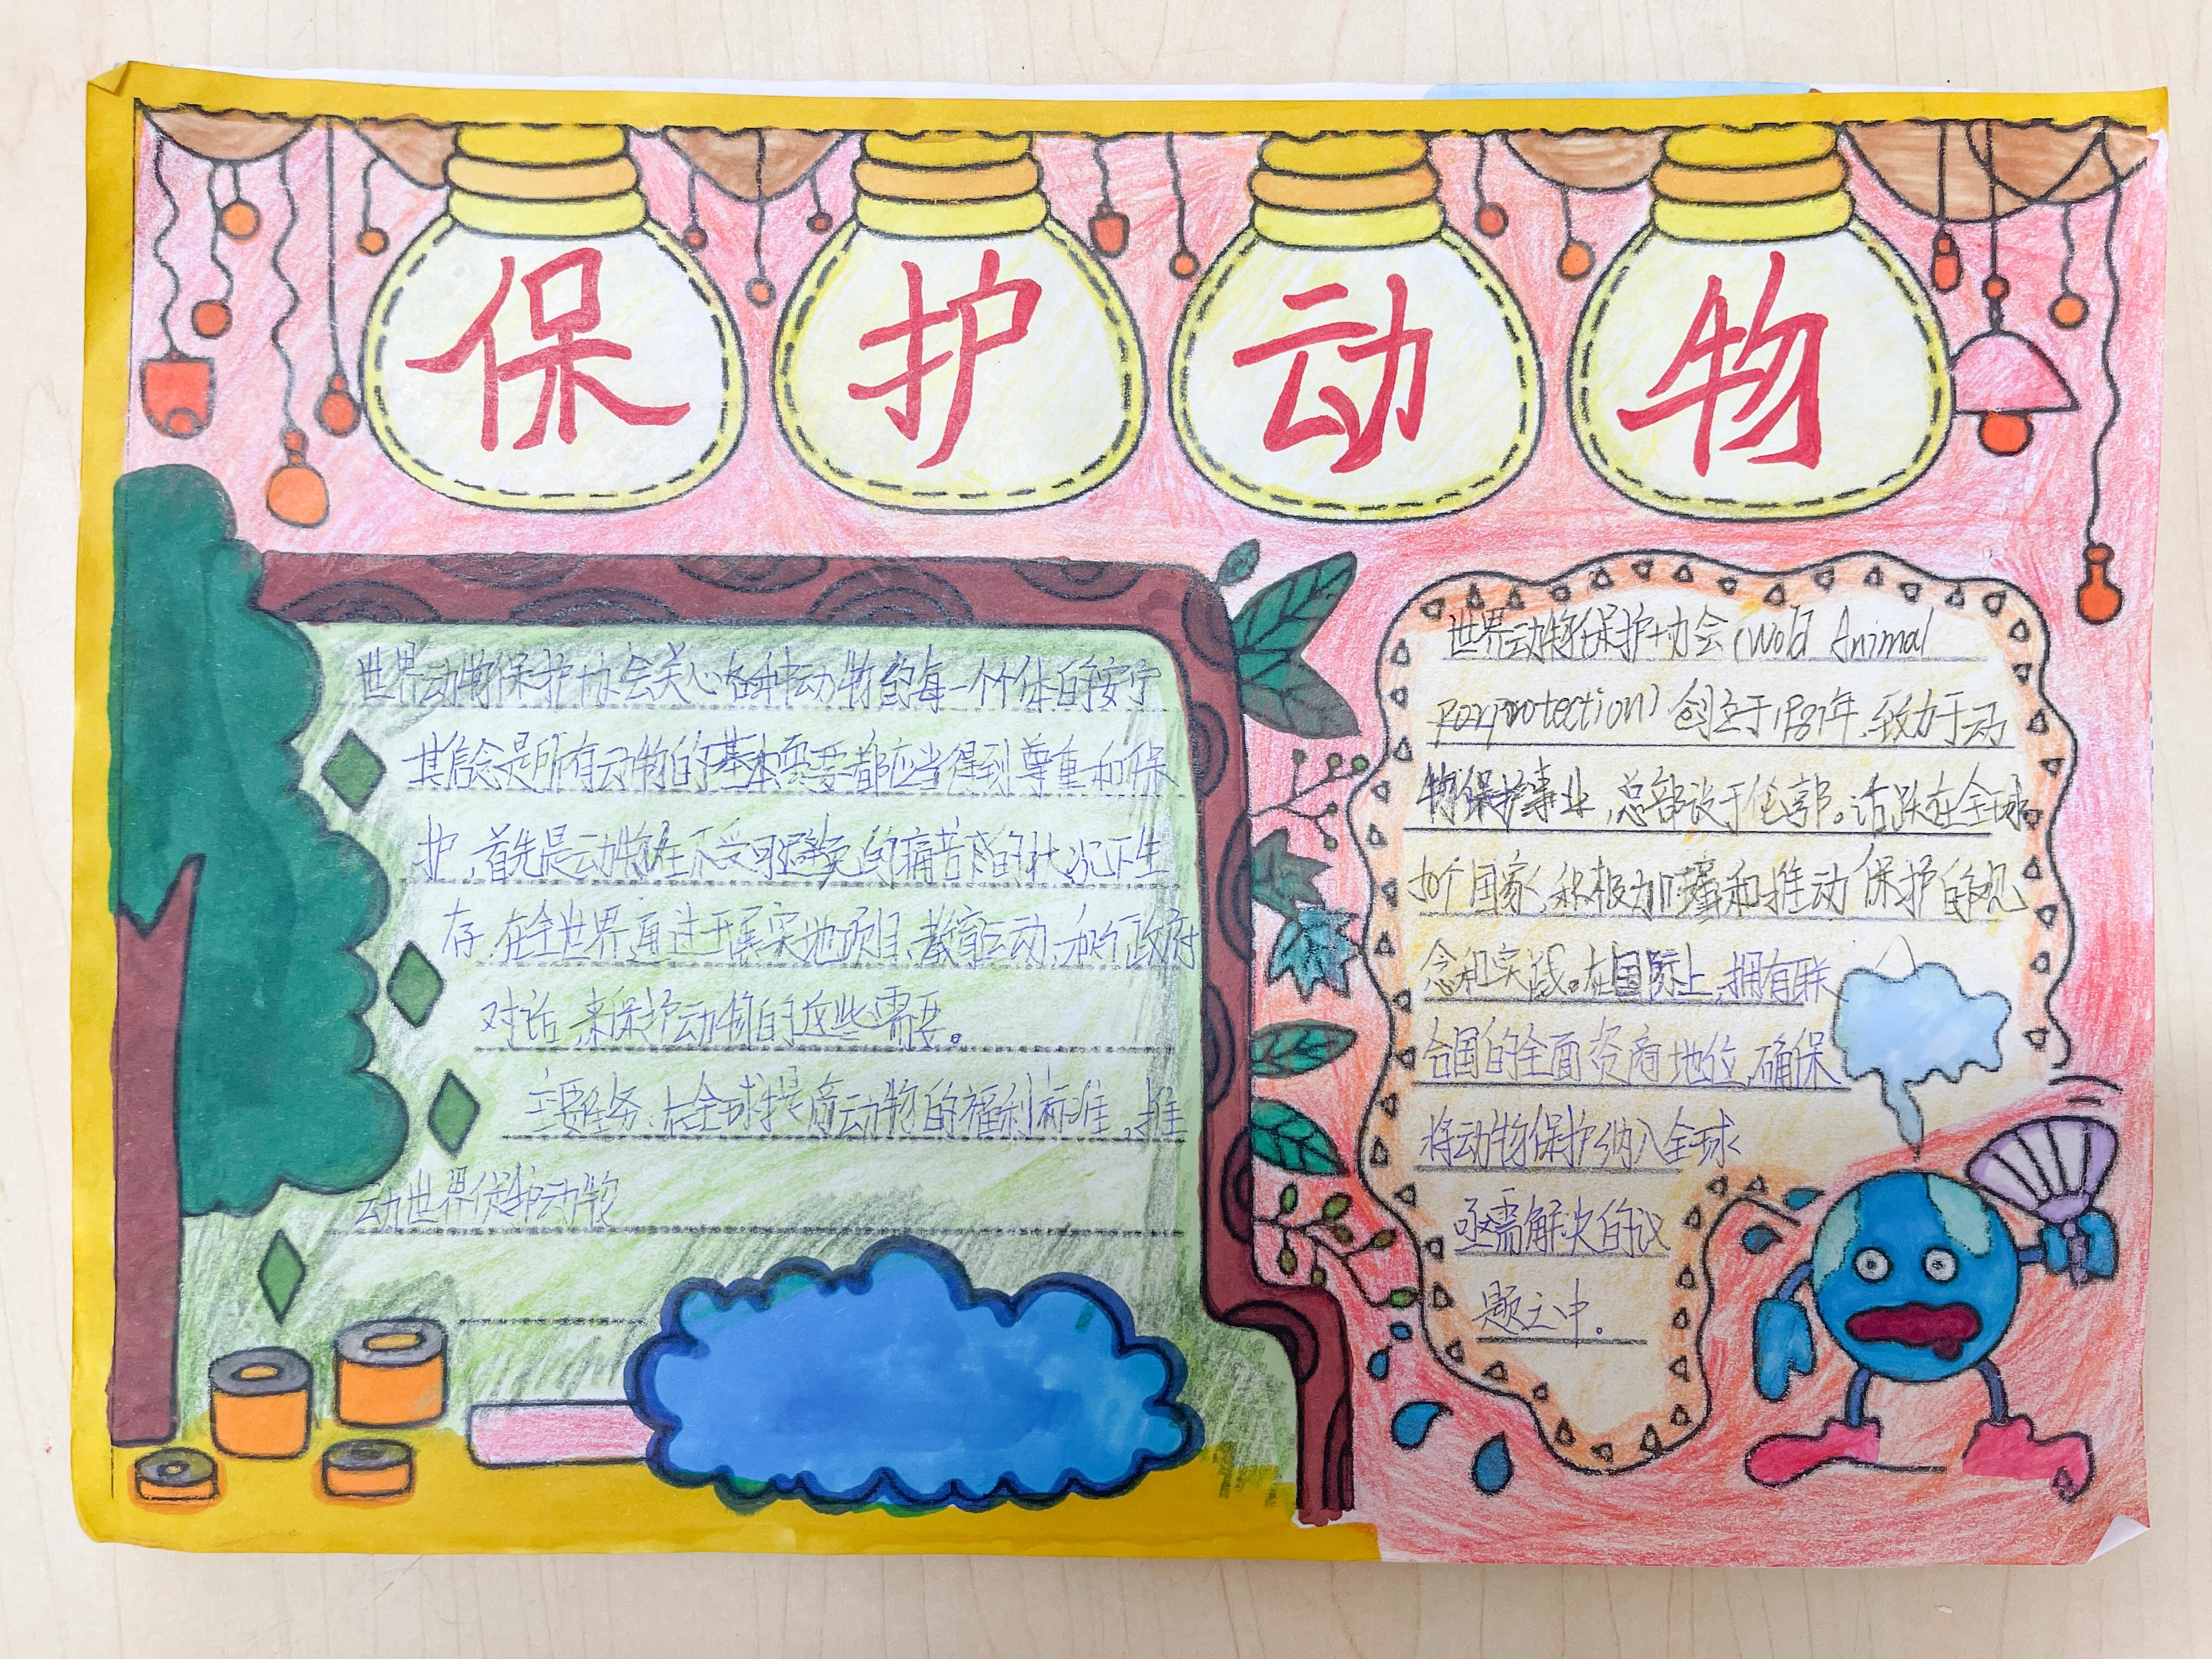 保护动物
世界动物保护协会关心各种动物的每一个个体的安宁
其信念是所有动物的基本需要都应当得到尊重和保
护,首先是动物在不受可避免的痛苦的状况下生
存,在全世界通过开展实地项目、教育运动、和行政府
对话,来保护动物的这些需要。
主要任务:在全球提高动物的福利标准,推
动世界保护动物
世界动物保护协会(Wold Animal
protection)创立于1981年,致力于动
物保护事业,总部设于伦敦。活跃在全球
50个国家,积极加强和推动保护的观
念和实践。在国际上,拥有联
合国的全面咨商地位,确保
将动物保护纳入全球
亟需解决的议
题之中。